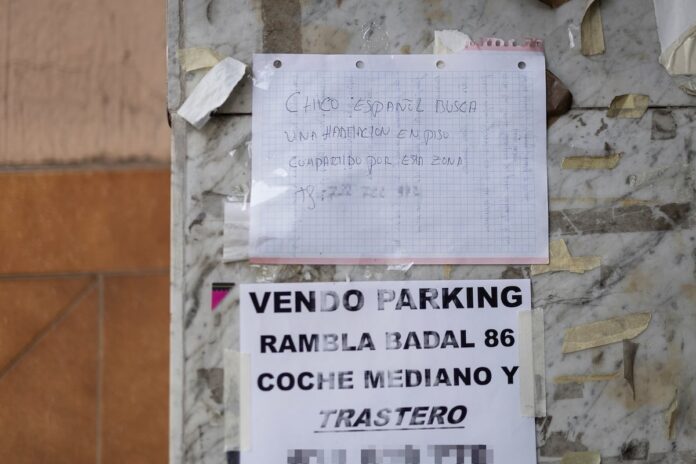 CHICO ESPAÑOL BUSCA
UNA HABITACION EN PISO
COMPARTIDO POR ESTA ZONA
VENDO PARKING
RAMBLA BADAL 86
COCHE MEDIANO Y
TRASTERO